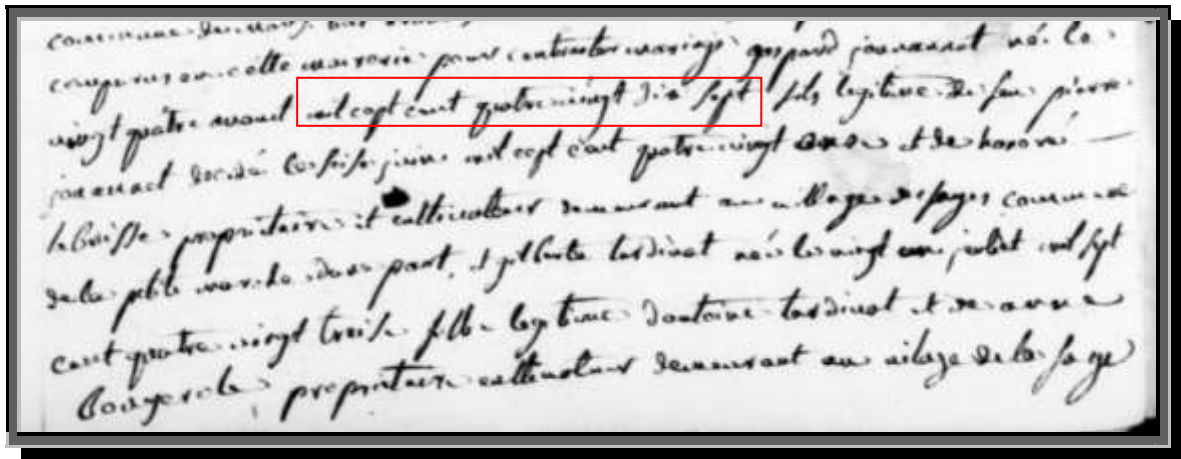 commune de
comparus en cette mairerie pour contracter mariage gaspard jouannet né le
vingt quatre avril mil cept cent quatre vingt dix sept fils legitime de feu pierre
jouannet decedé le seise juin mil cept cent quatre vingt onse et de honoré
labuisse propriétaire et cultivateur demeurant au village des fayes commune
de la petite marche d'une part, et gilberte tardivat née le vingt un juliet mil sept
cent quatre vingt treise fille legitime d'antoine tardivat et de anne
Bougerole propriétaire cultivateur demeurant au vilage de la faye